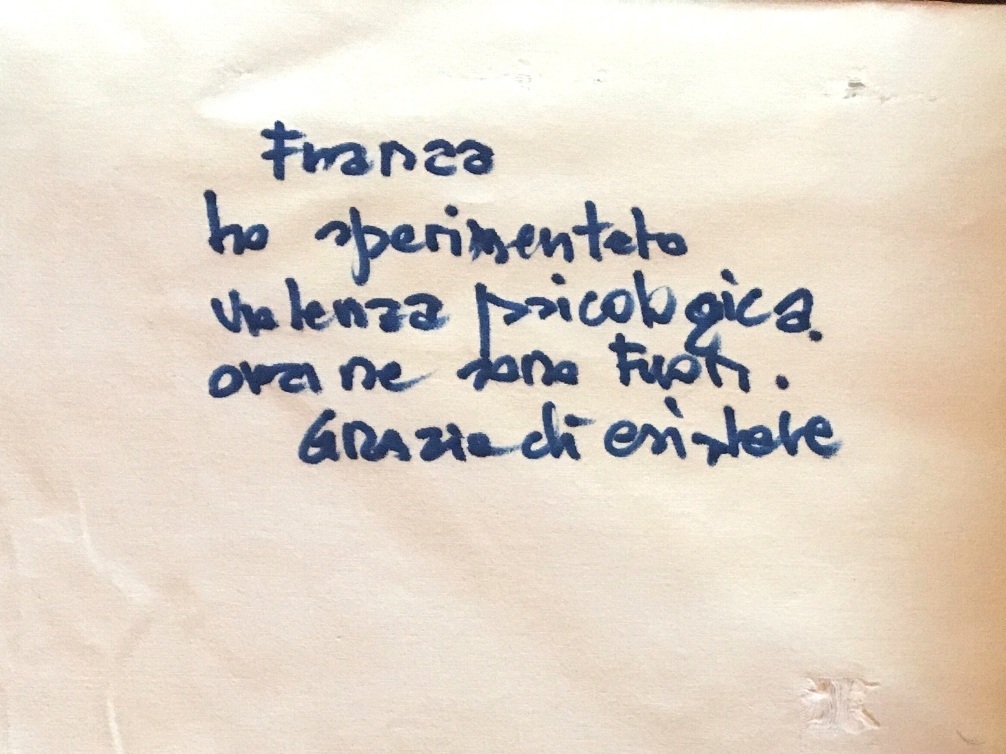 Franca
ho sperimentato
violenza psicologica.
ora ne sono fuori.
Grazie di esistere